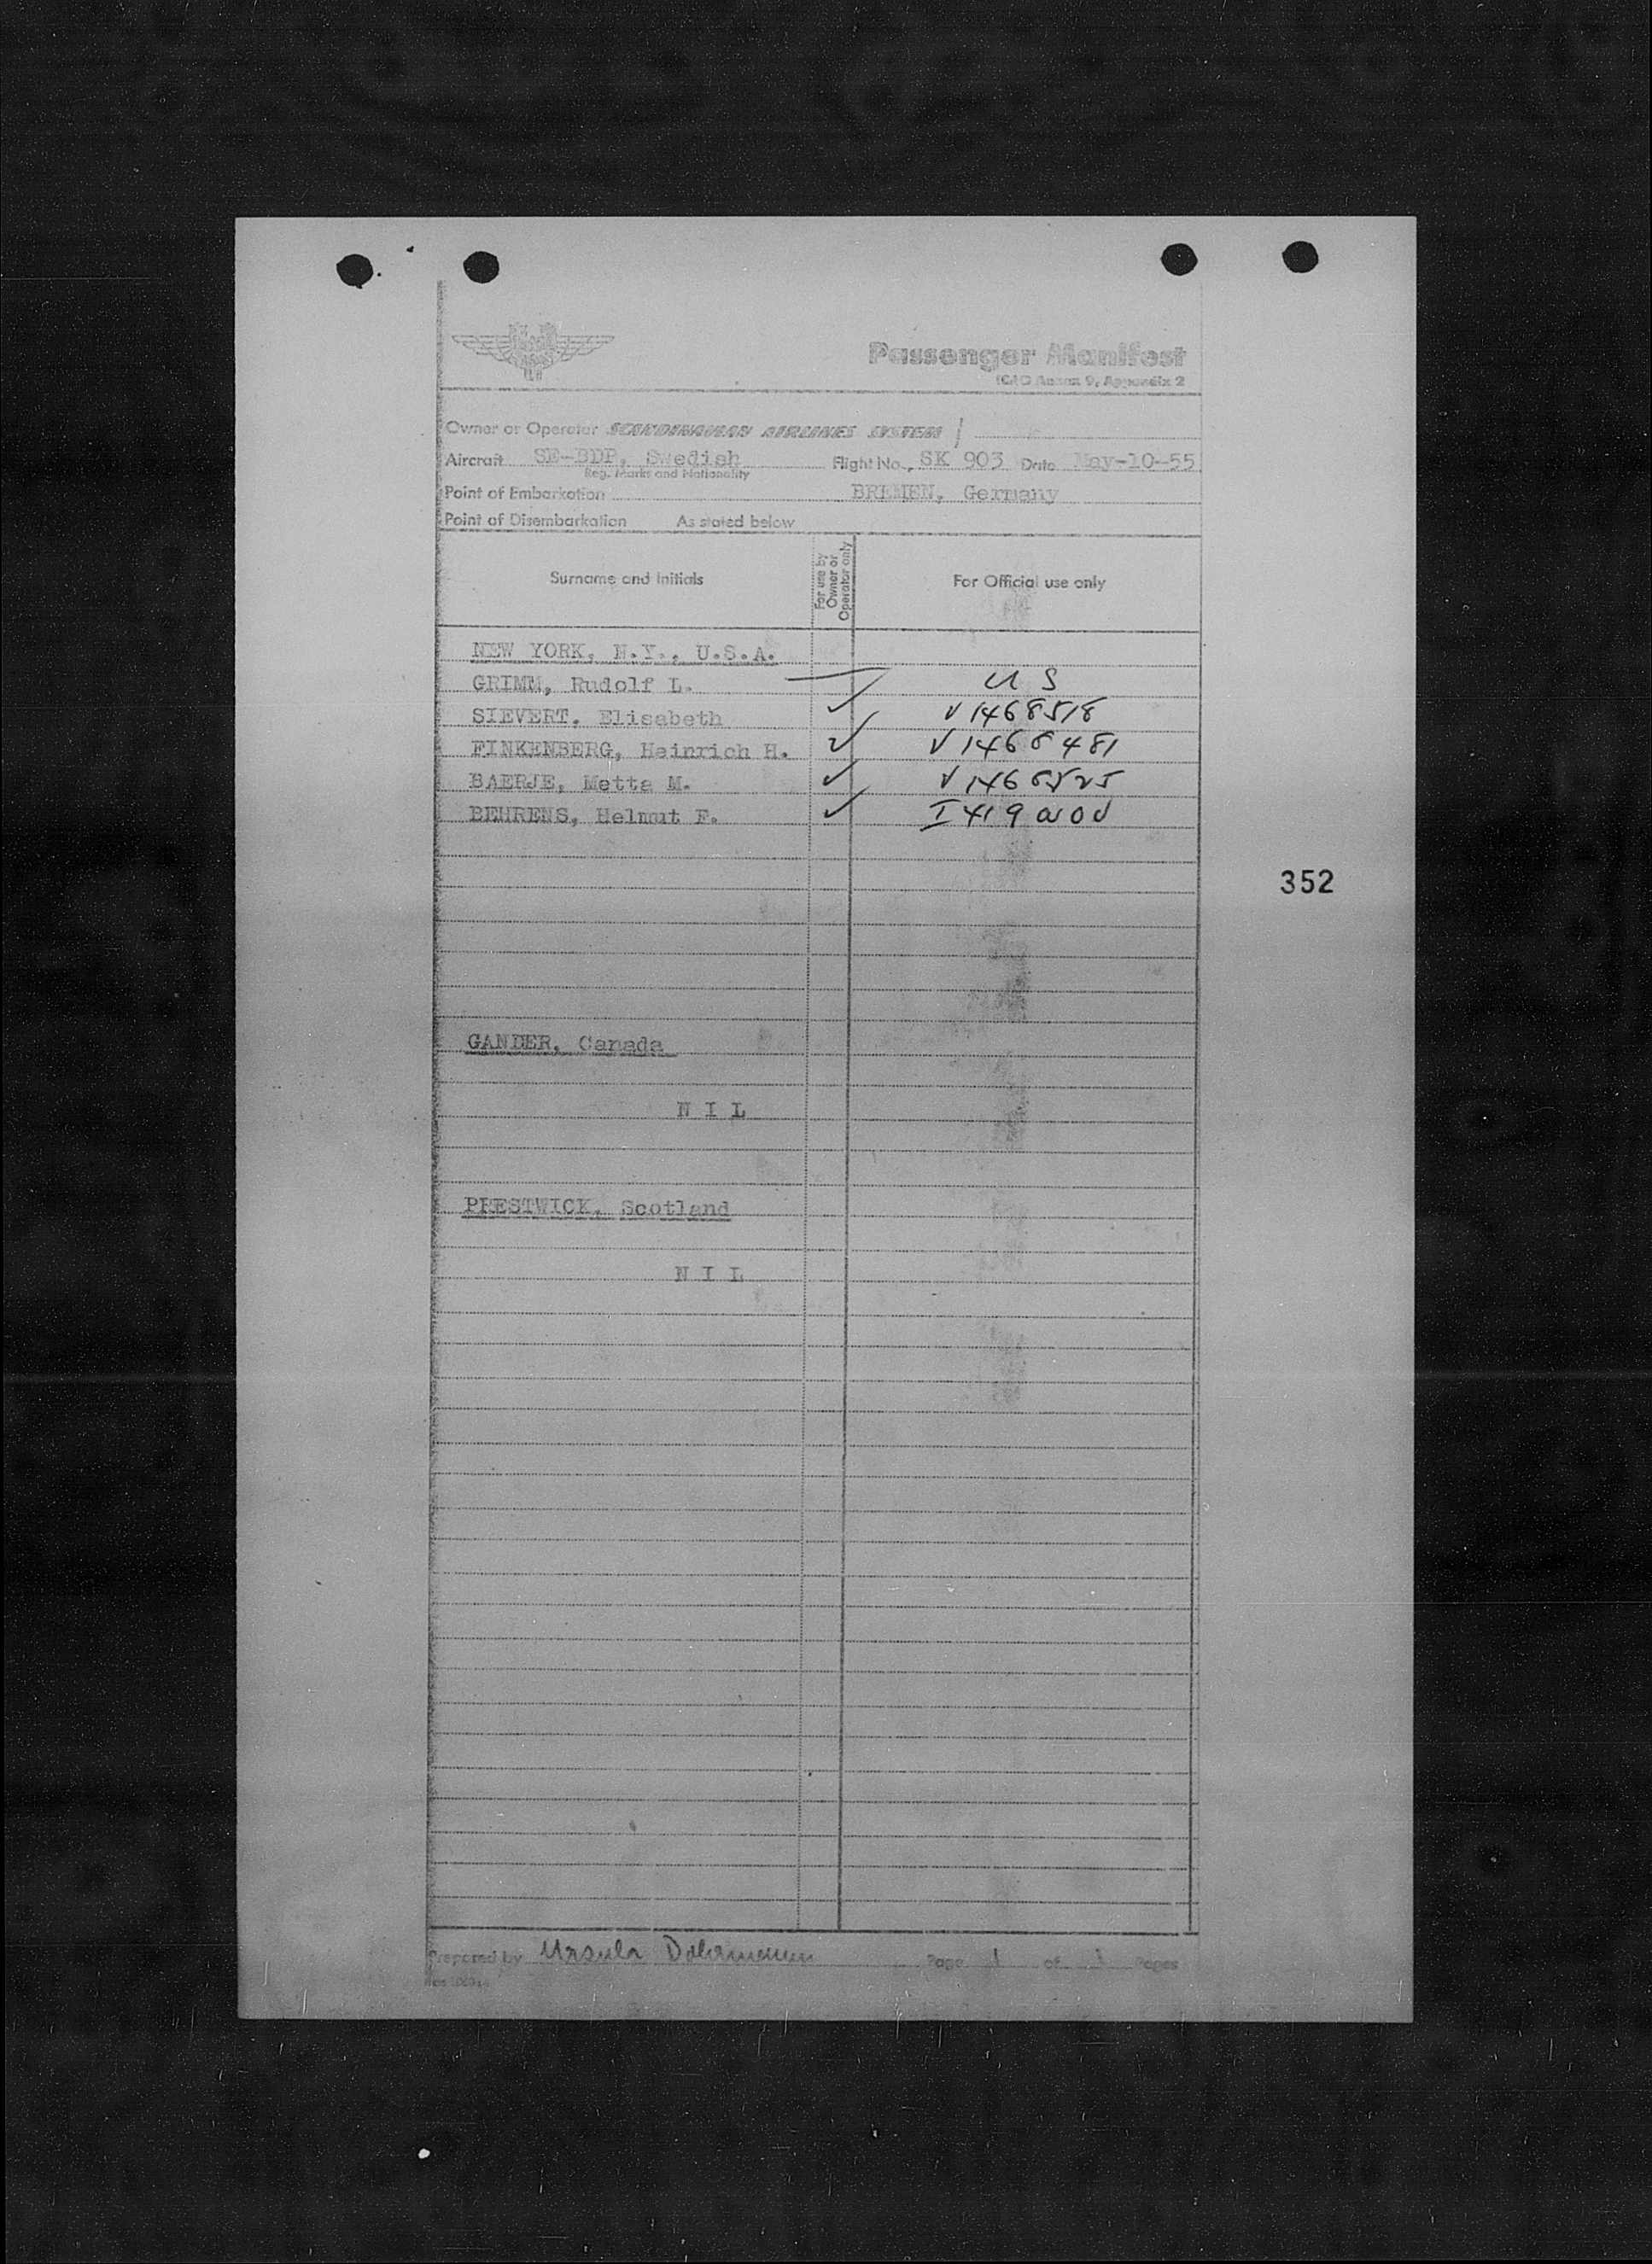 Passenger Manifest
ICAO Annex 9, Appendix 2
Owner or Operator SCANDINAVIAN AIRLINES SYSTEM
Aircraft SE-BDP, Swedish Flight No. SK 903 Date May-10-55
Reg. Marks and Nationality
Point of Embarkation BREMEN, Germany
Point of Disembarkation As stated below
Surname and Initials For use by Owner or Operator only For Official use only
NEW YORK, N.Y., U.S.A.
GRIMM, Rudolf L. — U S
SIEVERT, Elisabeth ✓ V 1468518
FINKENBERG, Heinrich H. ✓ V 1468481
BAERJE, Metta M. ✓ V 1468525
BEHRENS, Helmut F. ✓
352
GANDER, Canada
N I L
PRESTWICK, Scotland
N I L
Prepared by Ursula Page 1 of 1 Pages